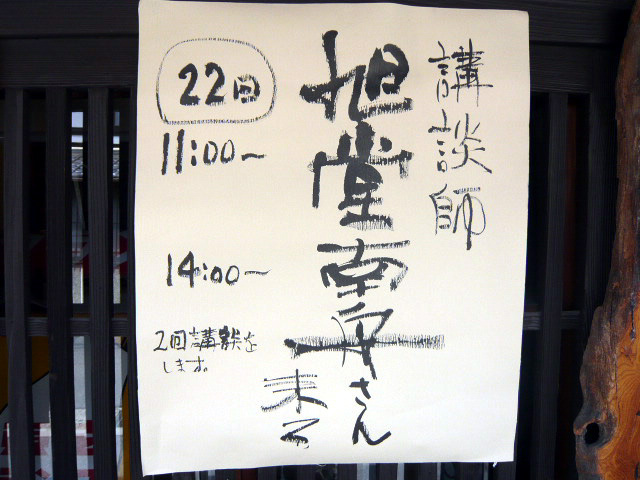 講談師
旭堂南舟さん
来る
22日
11:00～
14:00～
2回講談を
します。